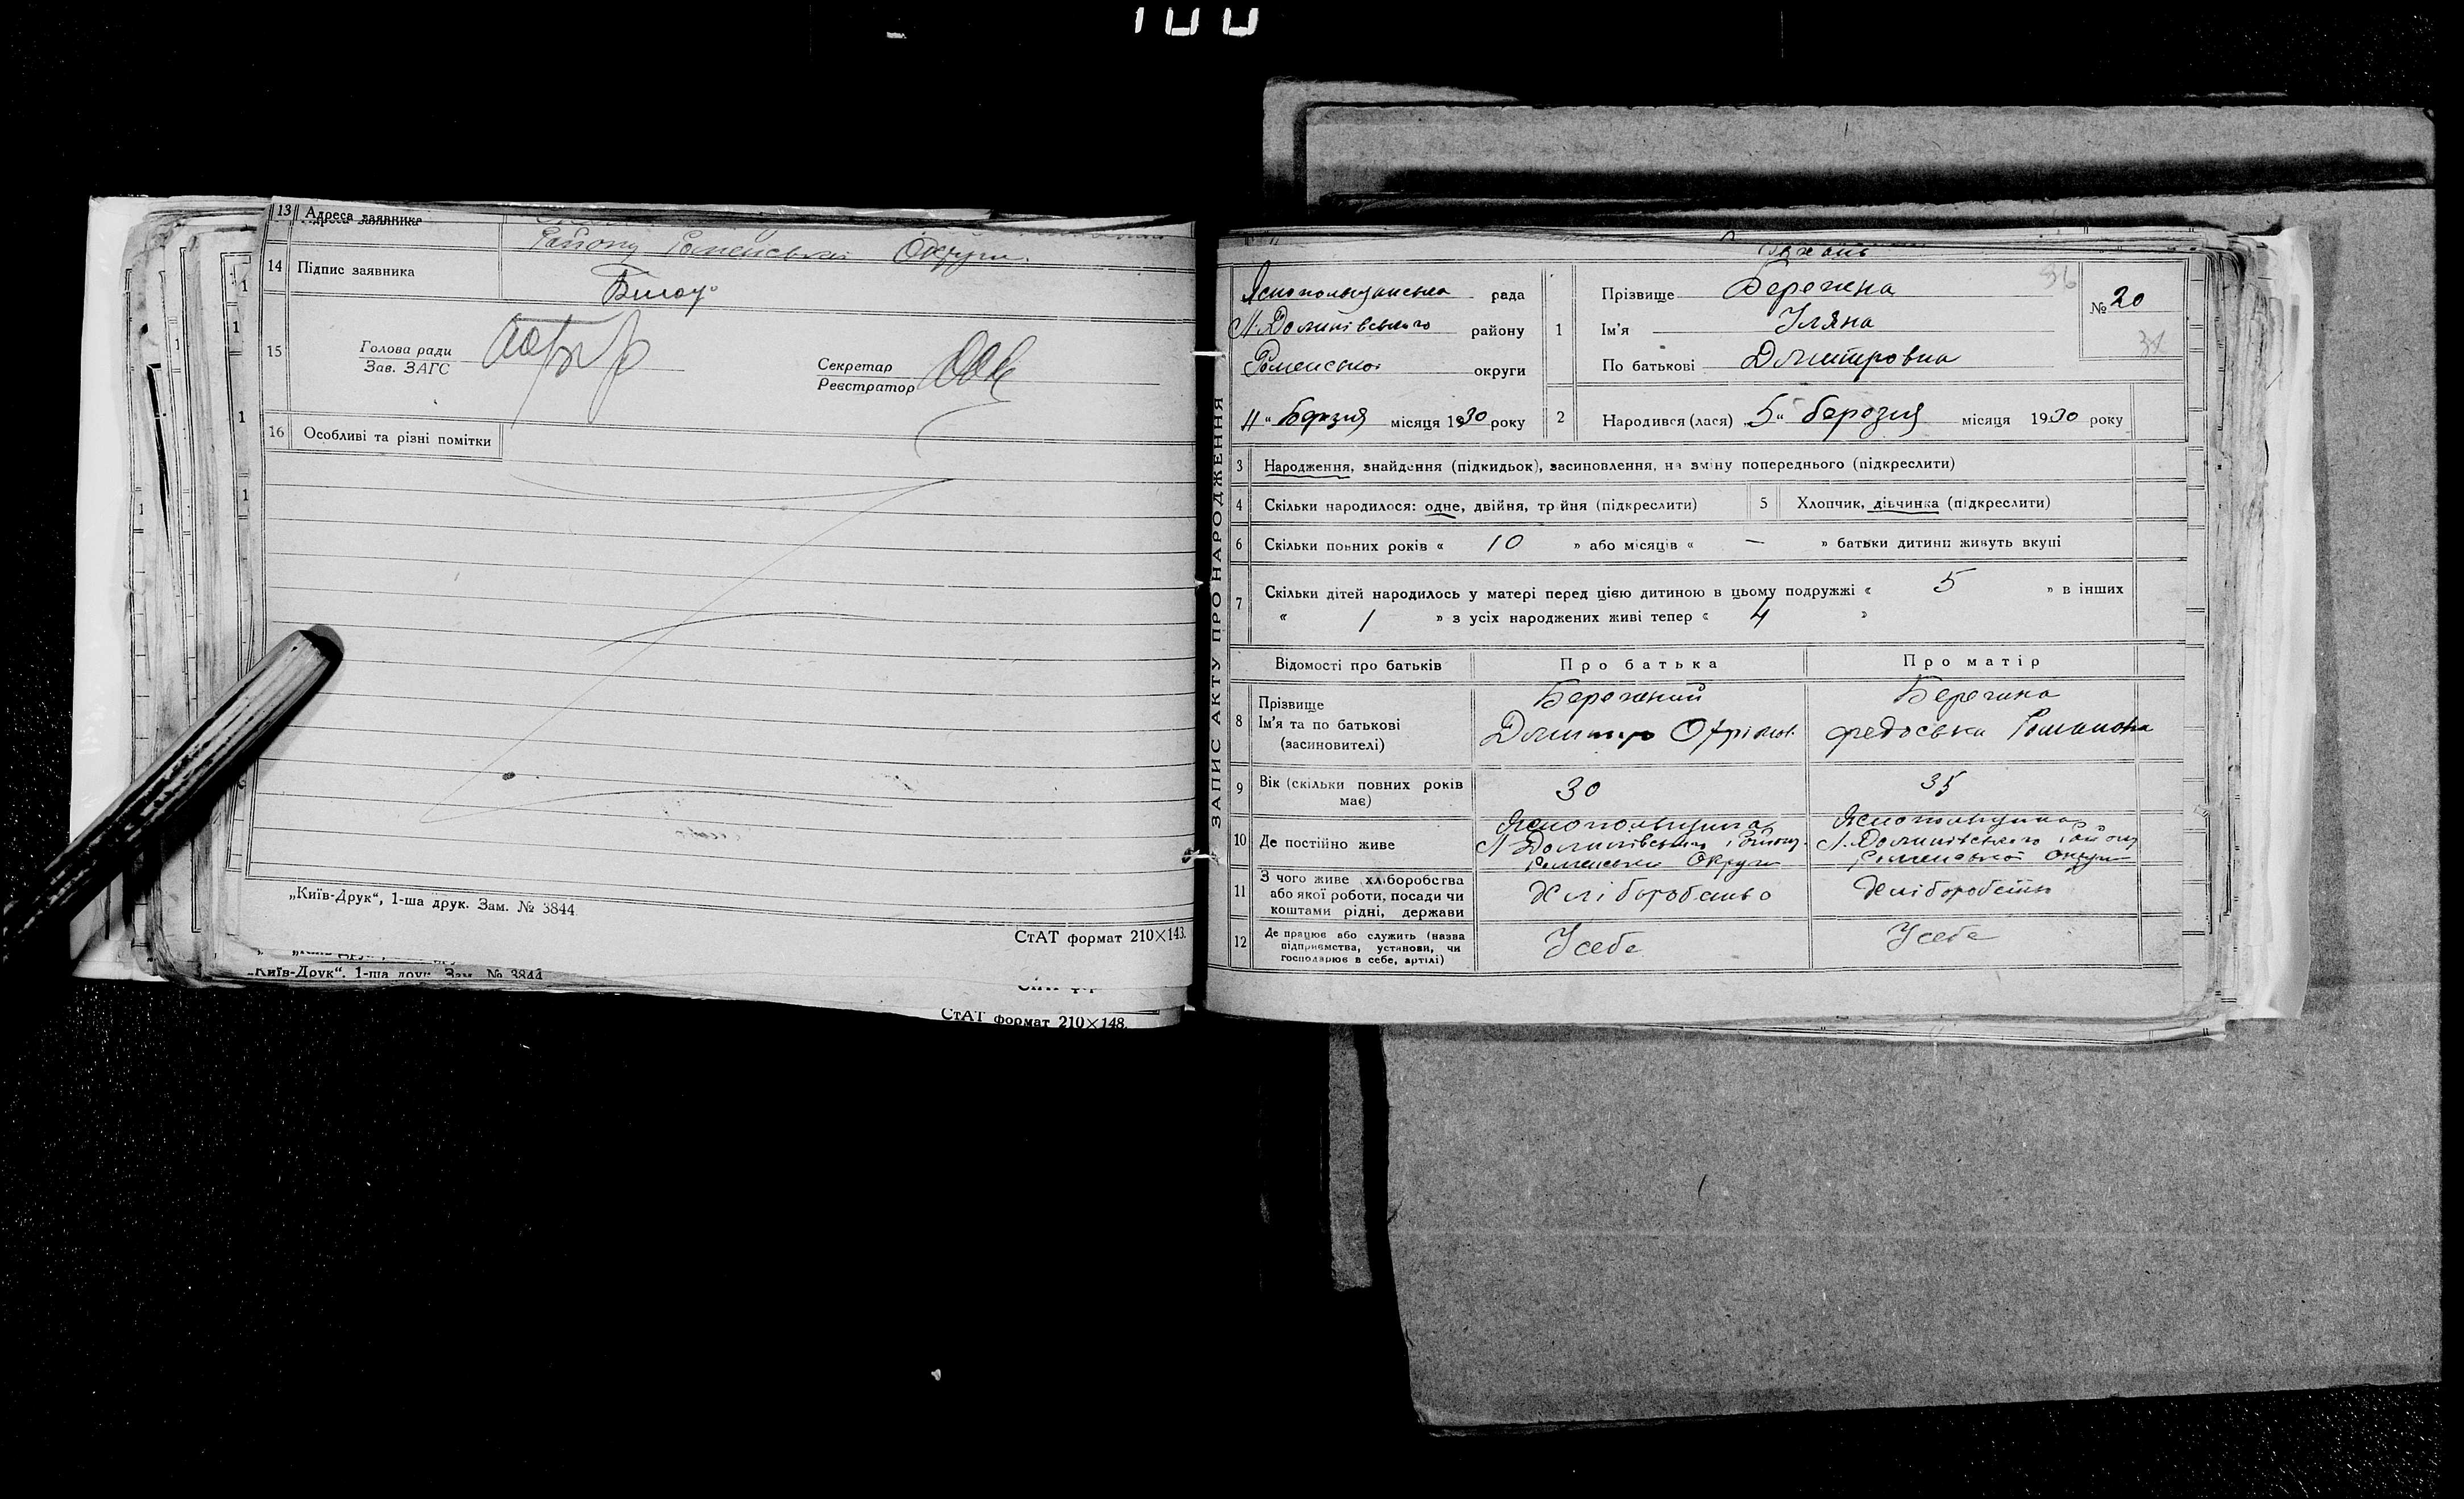 13 Адреса заявника
Району Роменської Округи.
14 Підпис заявника
Білоус
15 Голова ради
Зав. ЗАГС
Секретар
Реєстратор
16 Особливі та різні помітки
„Київ-Друк“, 1-ша друк. Зам. № 3844
СтАТ формат 210×143.
„Київ-Друк“. 1-ша друк. Зам. № 3844
СтАТ формат 210×148.
ЗАПИС АКТУ ПРО НАРОДЖЕННЯ
Яснопольщанська рада
Л. Долинівського району
Роменської округи
11 “ Березня місяця 1930 року
1 Прізвище Бережна
Ім'я Уляна
По батькові Дмитровна
№ 20
36
2 Народився (лася) „5“ березня місяця 1930 року
3 Народження, знайдення (підкидьок), засиновлення, на зміну попереднього (підкреслити)
4 Скільки народилося: одне, двійня, тр йня (підкреслити) 5 Хлопчик, дівчинка (підкреслити)
6 Скільки повних років « 10 » або місяців « — » батьки дитини живуть вкупі
7 Скільки дітей народилось у матері перед цією дитиною в цьому подружжі « 5 » в інших
« 1 » з усіх народжених живі тепер « 4 »
Відомості про батьків Про батька Про матір
8 Прізвище Бережний Бережна
Ім'я та по батькові Дмитро Федоська Романовна
(засиновителі)
9 Вік (скільки повних років має) 30 35
10 Де постійно живе
Яснопольщина Яснопольщина
Л. Долинівського Району Л. Долинівського Району
Роменської Округи Роменської Округи
11 З чого живе хліборобства
або якої роботи, посади чи Хліборобство Хліборобство
коштами рідні, держави
12 Де працює або служить (назва
підприємства, установи, чи У себе У себе
господарює в себе, артілі)